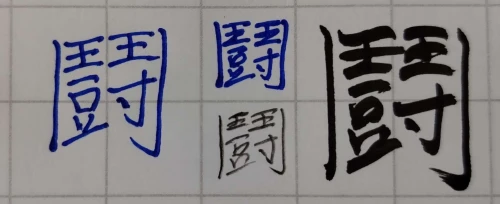 鬪 鬪 鬪
鬪